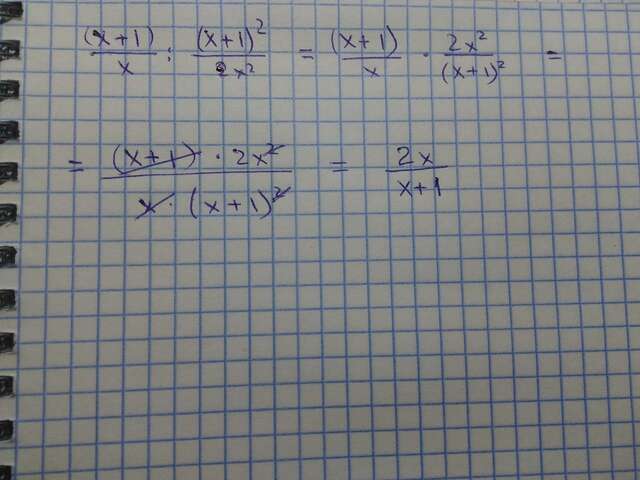 (x+1)/x : (x+1)²/2x² = (x+1)/x · 2x²/(x+1)² =
= (x+1) · 2x²/x · (x+1)² = 2x/x+1